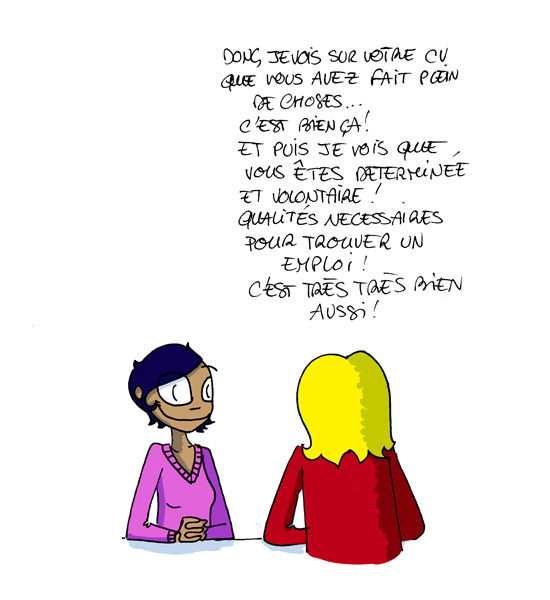 DONC, JE VOIS SUR VOTRE CV
QUE VOUS AVEZ FAIT PLEIN
DE CHOSES...
C'EST BIEN ÇA!
ET PUIS JE VOIS QUE
VOUS ÊTES DETERMINÉE
ET VOLONTAIRE!
QUALITÉS NECESSAIRES
POUR TROUVER UN
EMPLOI!
C'EST TRÈS TRÈS BIEN
AUSSI!